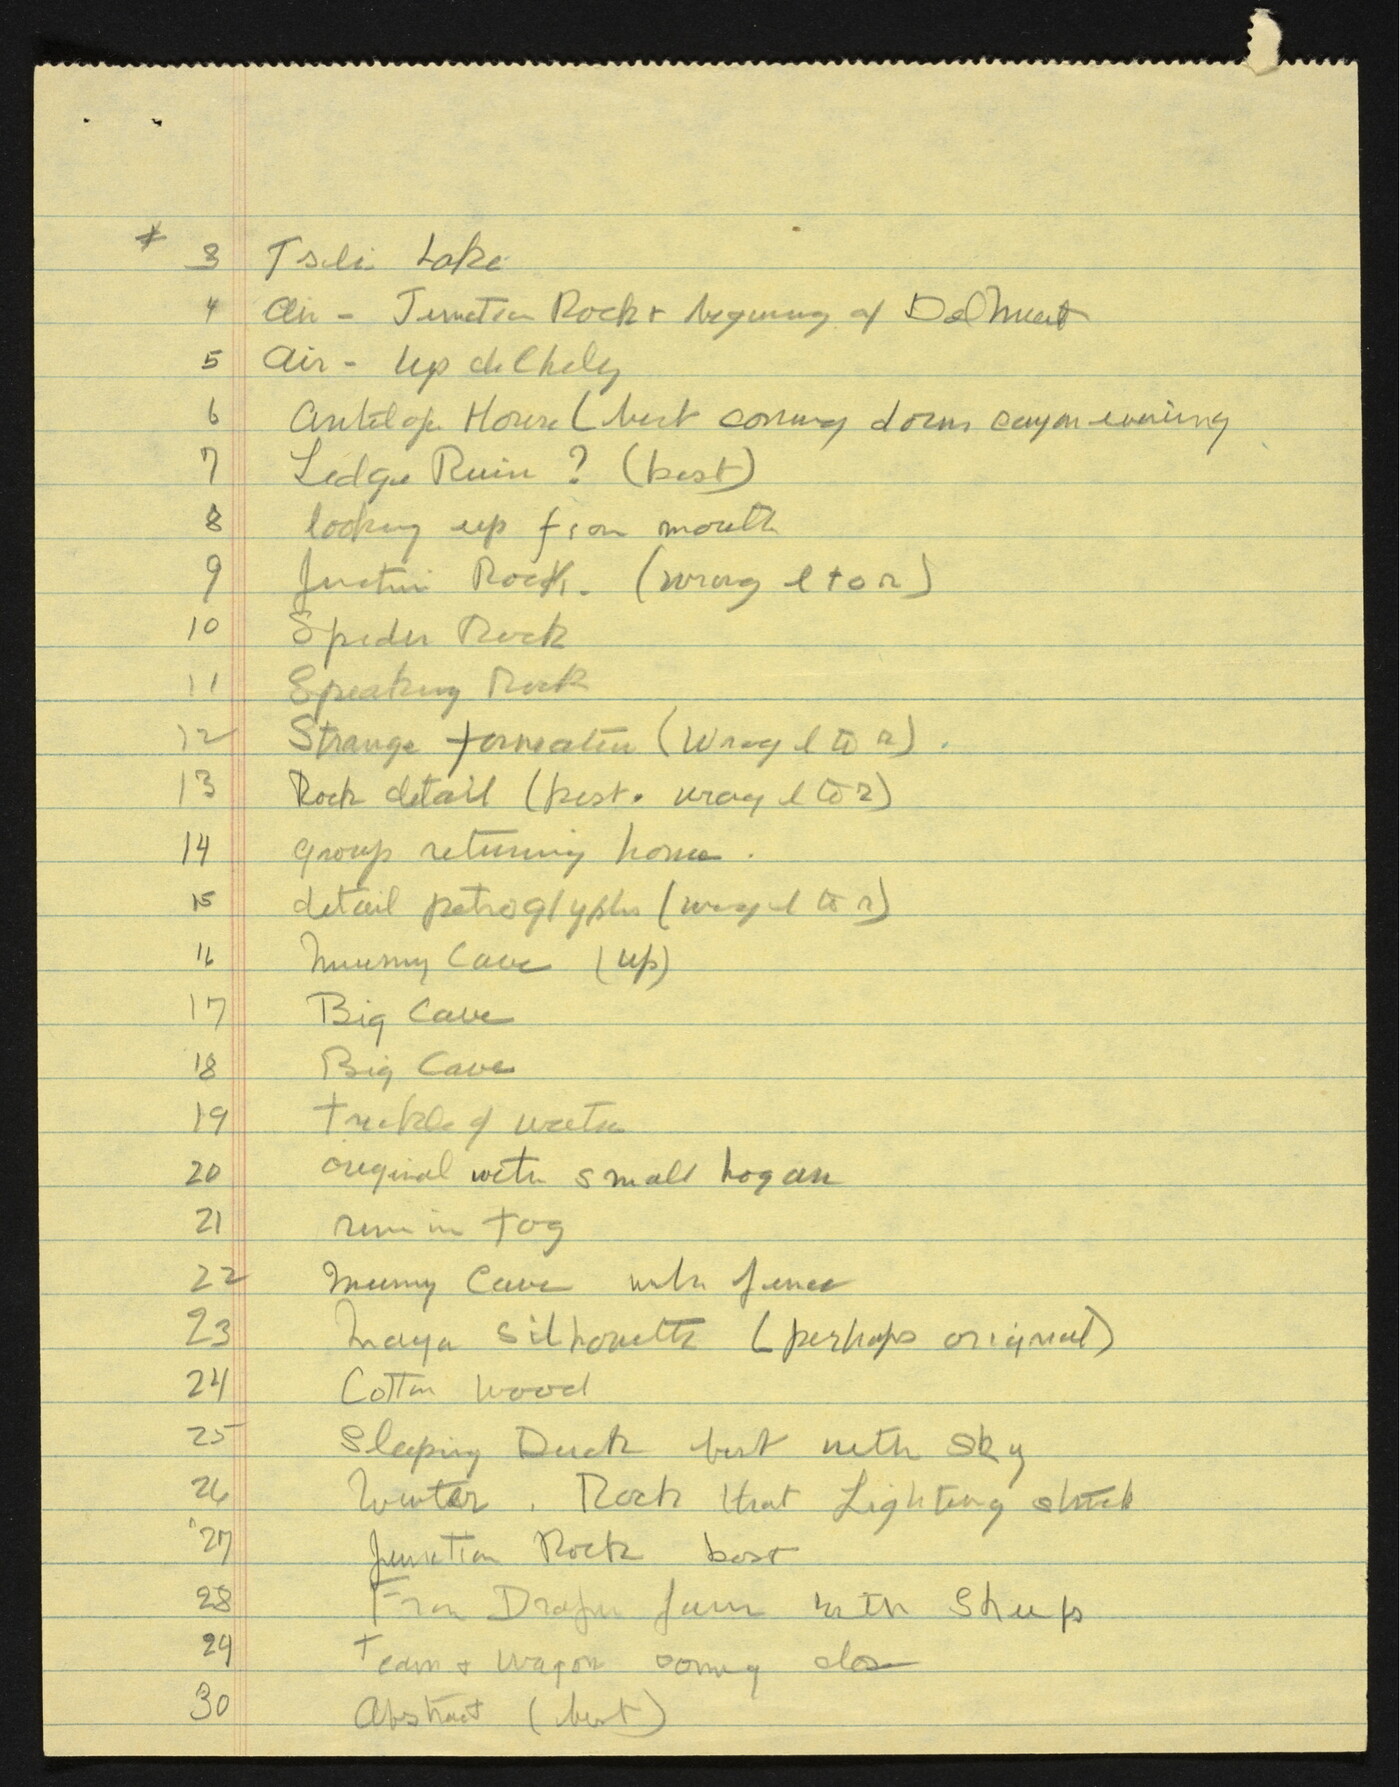 * 3 Tseli Lake
4 Air - Junction Rock + beginning of Del Muert
5 Air - up de Chely
6 Antelope House (best coming down canyon evening
7 Ledge Ruin ? (best)
8 looking up from mouth
9 Junction Rock. (wrong l to r)
10 Spider Rock
11 Speaking Rock
12 Strange formation (wrong l to r).
13 Rock detail (best. wrong l to r)
14 group returning home.
15 detail petroglyphs (wrong l to r)
16 Mummy Cave (up)
17 Big Cave
18 Big Cave
19 trickle of water
20 original with small hogan
21 ruin in fog
22 Mummy Cave with fence
23 Maya silhouette (perhaps original)
24 Cotton wood
25 Sleeping Duck best with sky
26 Winter. Rock that Lighting struck
27 Junction Rock best
28 From Draper farm with sheep
29 Team + wagon coming close
30 Abstract (best)